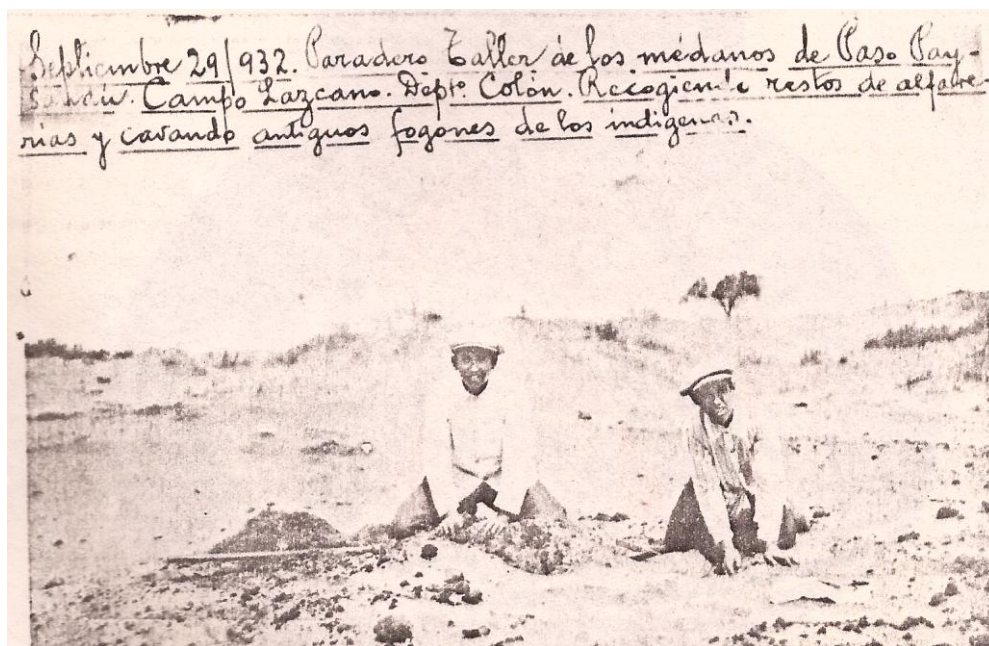 Septiembre 29/932. Paradero Taller de los médanos de Paso Pay-
sandú. Campo Lazcano. Depto. Colón. Recogiendo restos de alfare-
rias y cavando antiguos fogones de los indígenas.